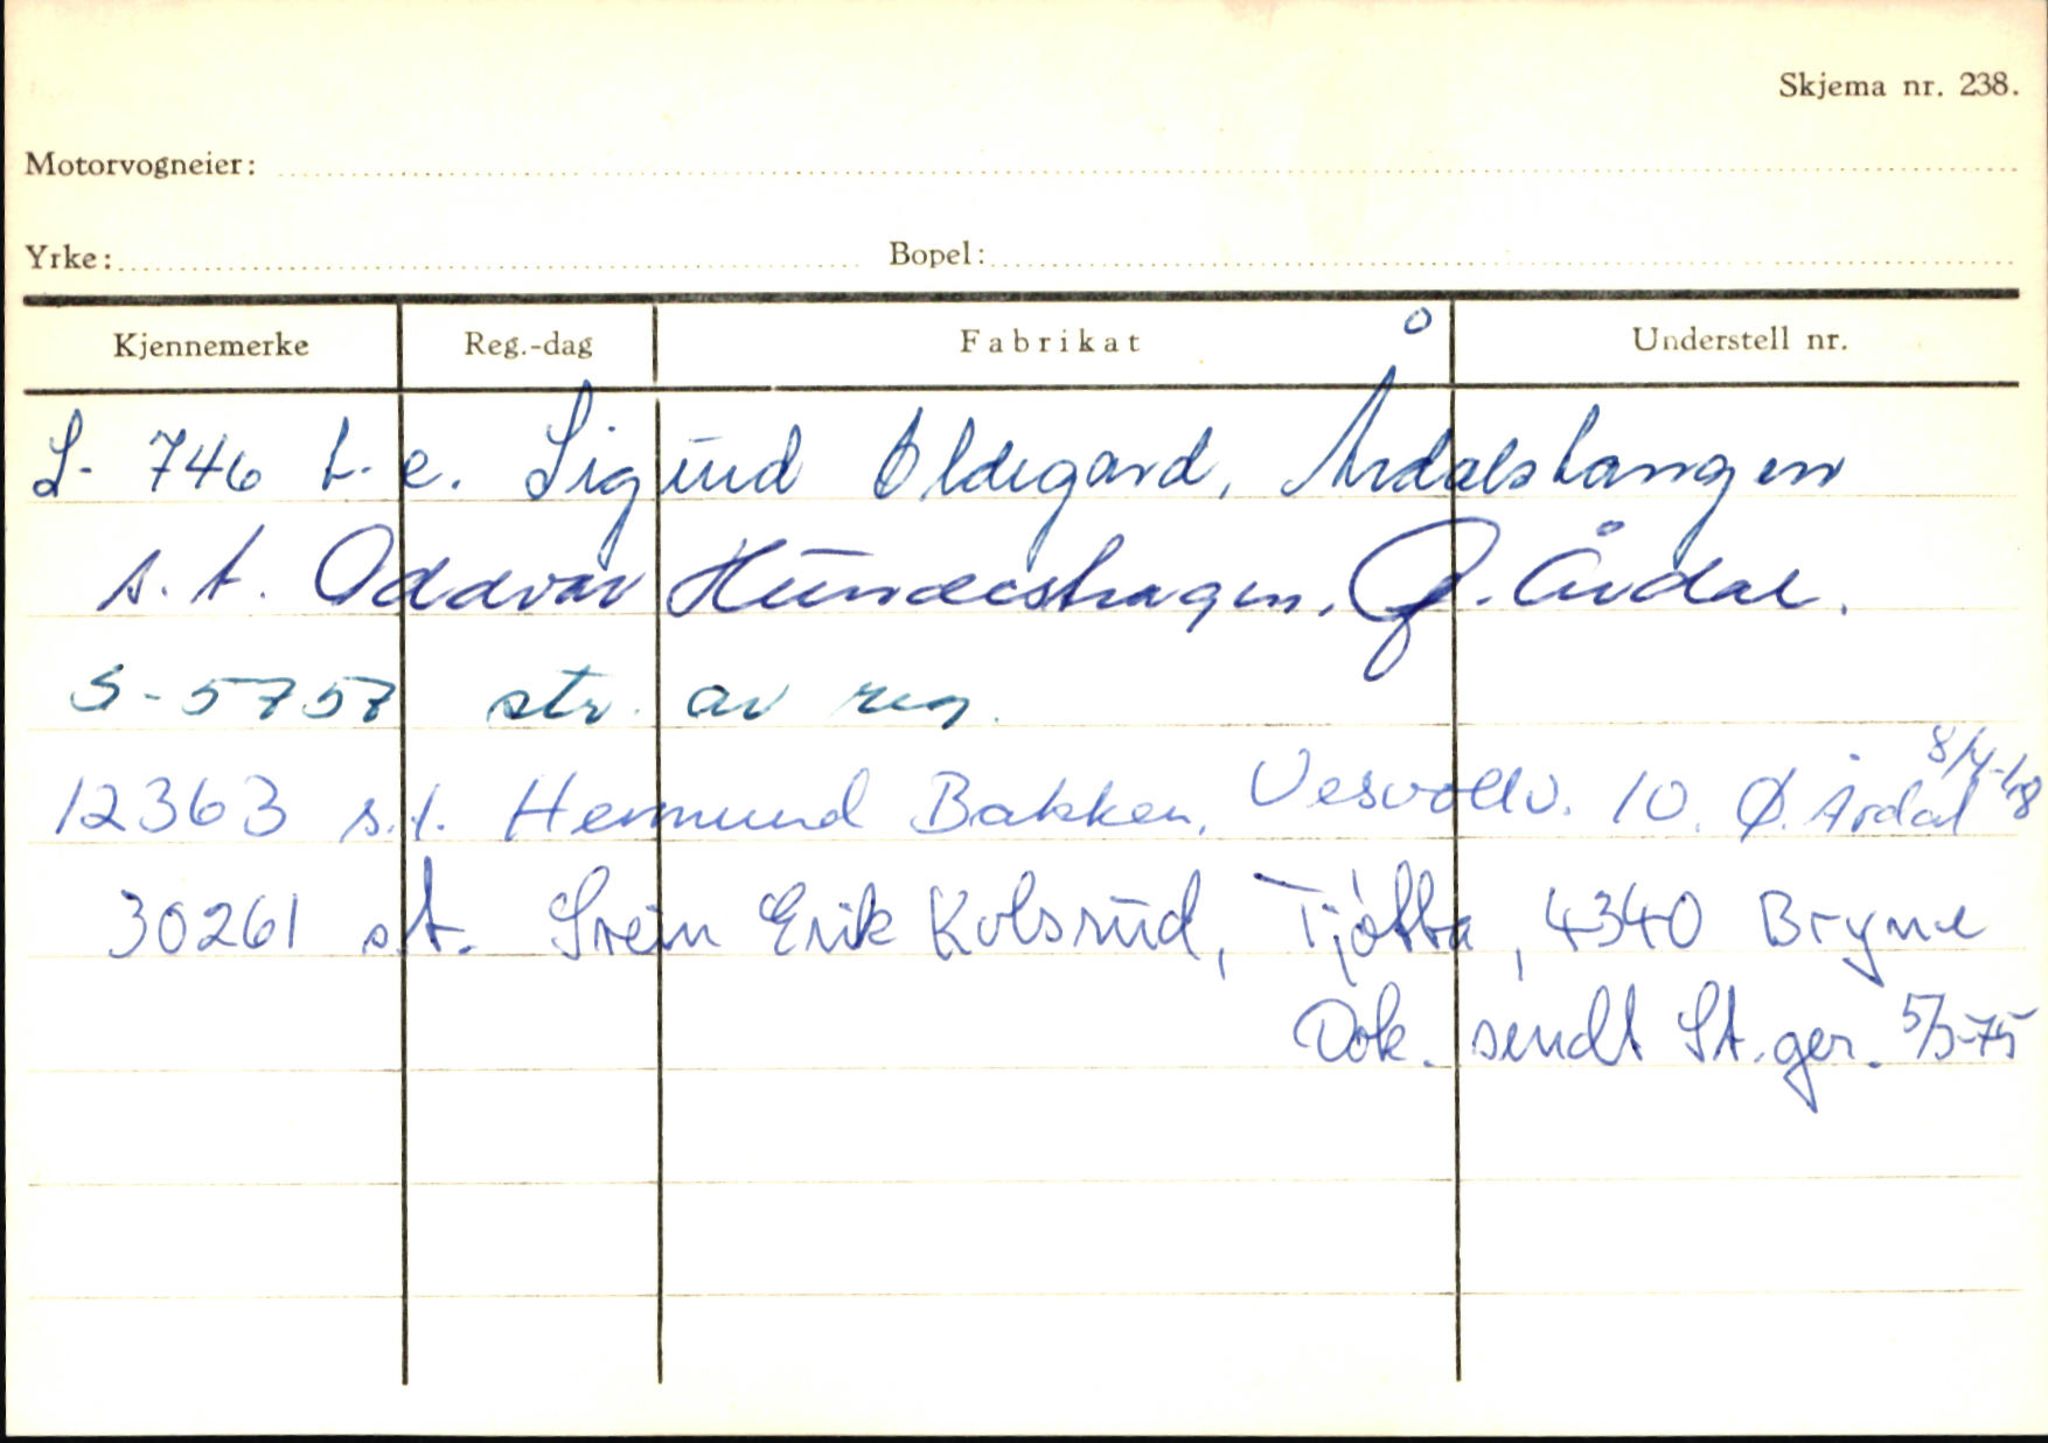 Skjema nr. 238.
Motorvogneier:
Yrke: Bopel:
Kjennemerke Reg.-dag Fabrikat Understell nr.
S- 746 t. e. Sigund Oldegard, Årdalstangen
s. t. Oddvar Hundeshagen, Ø. Årdal.
S-5757 str. av reg.
12363 s.t. Hermund Bakken, Vesvollv. 10. Ø. Årdal
30261 s.t. Svein Erik Kolsrud, Tjøtta, 4340 Bryne
Dok. sendt St.ger. 5/3-75